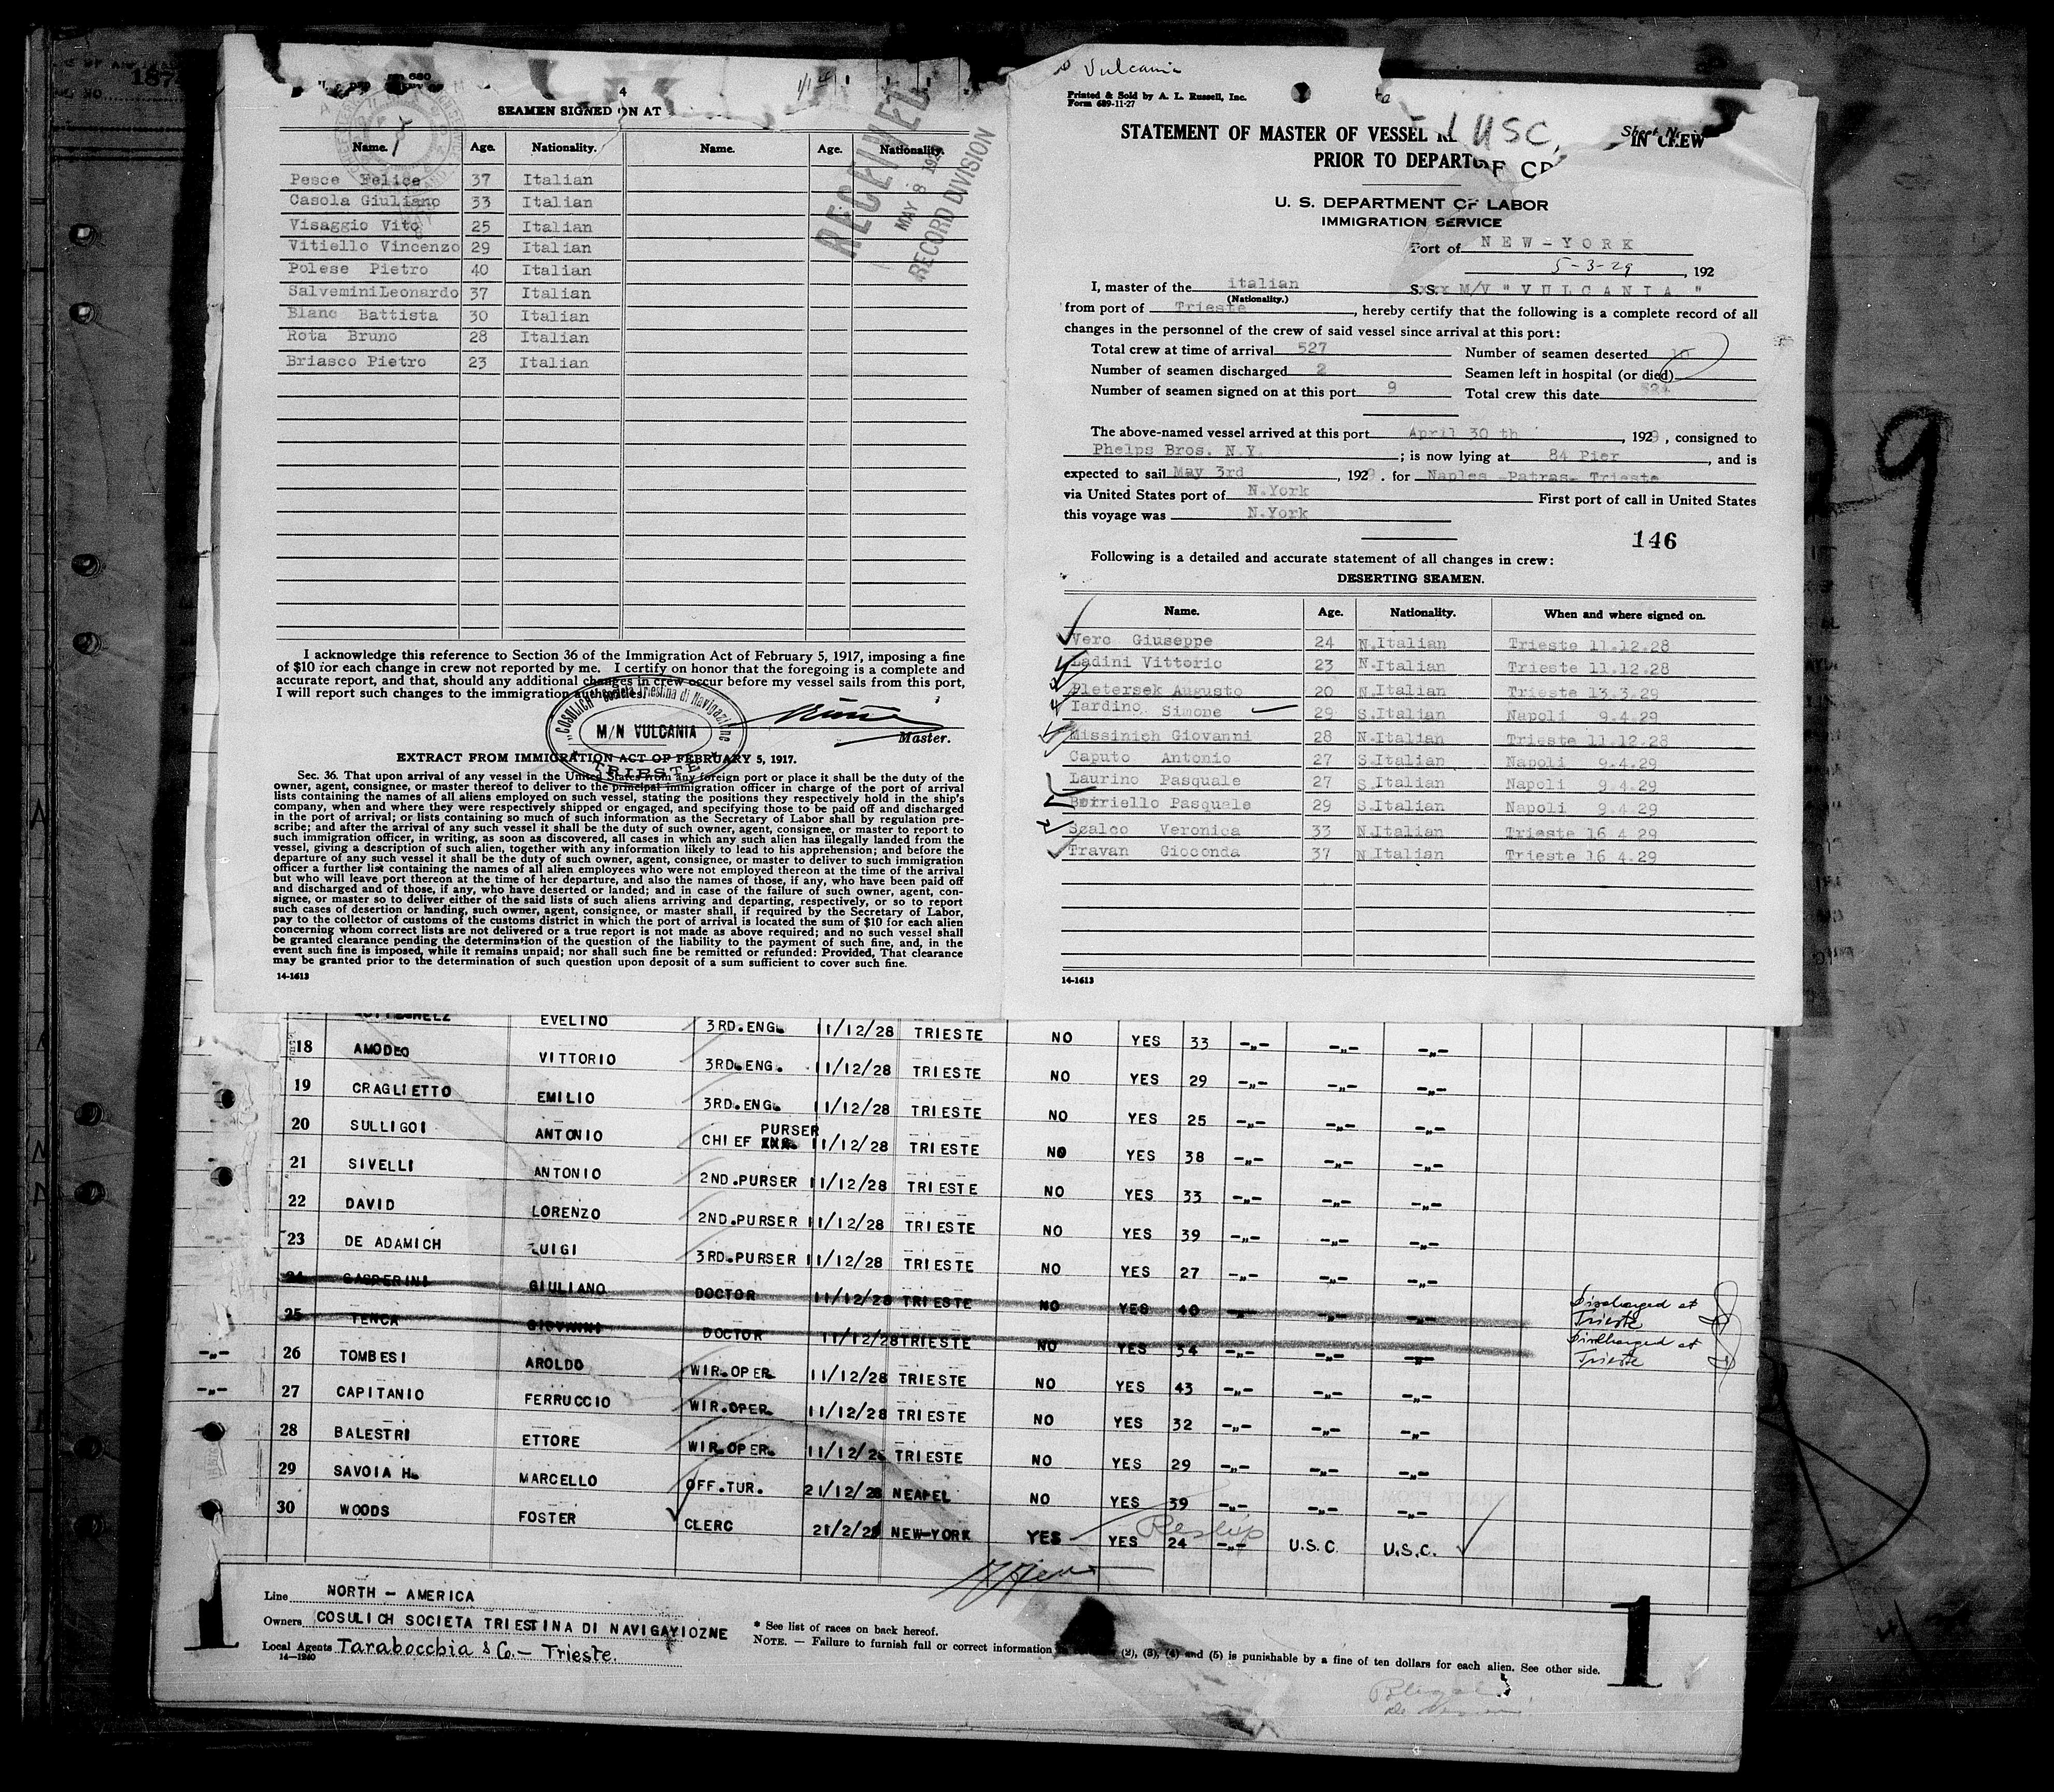 187
4
SEAMEN SIGNED ON AT
Name. Age. Nationality. Name. Age. Nationality.
Pesce Felice 37 Italian
Casola Giuliano 33 Italian
Visaggio Vito 25 Italian
Vitiello Vincenzo 29 Italian
Polese Pietro 40 Italian
SalveminiLeonardo 37 Italian
Blanc Battista 30 Italian
Rota Bruno 28 Italian
Briasco Pietro 23 Italian
RECEIVED
MAY 8 192
RECORD DIVISION
I acknowledge this reference to Section 36 of the Immigration Act of February 5, 1917, imposing a fine
of $10 for each change in crew not reported by me. I certify on honor that the foregoing is a complete and
accurate report, and that, should any additional changes in crew occur before my vessel sails from this port,
I will report such changes to the immigration authorities.
"COSULICH" Società Triestina di Navigazione
M/N VULCANIA
TRIESTE
Master.
EXTRACT FROM IMMIGRATION ACT OF FEBRUARY 5, 1917.
Sec. 36. That upon arrival of any vessel in the United States from any foreign port or place it shall be the duty of the
owner, agent, consignee, or master thereof to deliver to the principal immigration officer in charge of the port of arrival
lists containing the names of all aliens employed on such vessel, stating the positions they respectively hold in the ship's
company, when and where they were respectively shipped or engaged, and specifying those to be paid off and discharged
in the port of arrival; or lists containing so much of such information as the Secretary of Labor shall by regulation pre-
scribe; and after the arrival of any such vessel it shall be the duty of such owner, agent, consignee, or master to report to
such immigration officer, in writing, as soon as discovered, all cases in which any such alien has illegally landed from the
vessel, giving a description of such alien, together with any information likely to lead to his apprehension; and before the
departure of any such vessel it shall be the duty of such owner, agent, consignee, or master to deliver to such immigration
officer a further list containing the names of all alien employees who were not employed thereon at the time of the arrival
but who will leave port thereon at the time of her departure, and also the names of those, if any, who have been paid off
and discharged and of those, if any, who have deserted or landed; and in case of the failure of such owner, agent, con-
signee, or master so to deliver either of the said lists of such aliens arriving and departing, respectively, or so to report
such cases of desertion or landing, such owner, agent, consignee, or master shall, if required by the Secretary of Labor,
pay to the collector of customs of the customs district in which the port of arrival is located the sum of $10 for each alien
concerning whom correct lists are not delivered or a true report is not made as above required; and no such vessel shall
be granted clearance pending the determination of the question of the liability to the payment of such fine, and, in the
event such fine is imposed, while it remains unpaid; nor shall such fine be remitted or refunded: Provided, That clearance
may be granted prior to the determination of such question upon deposit of a sum sufficient to cover such fine.
14-1613
Vulcania
Printed & Sold by A. L. Russell, Inc.
Form 689-11-27
1 USC,
Sheet No.
STATEMENT OF MASTER OF VESSEL IN CREW
PRIOR TO DEPARTU
U. S. DEPARTMENT OF LABOR
IMMIGRATION SERVICE
Port of NEW-YORK
5-3-29, 192
I, master of the italian S.S. M/V "VULCANIA"
(Nationality.)
from port of Trieste, hereby certify that the following is a complete record of all
changes in the personnel of the crew of said vessel since arrival at this port:
Total crew at time of arrival 527 Number of seamen deserted 10
Number of seamen discharged 2 Seamen left in hospital (or died)
Number of seamen signed on at this port 9 Total crew this date 524
The above-named vessel arrived at this port April 30 th, 1929, consigned to
Phelps Bros. N.Y. ; is now lying at 84 Pier, and is
expected to sail May 3rd, 1929. for Naples -Patras- Trieste
via United States port of N.York First port of call in United States
this voyage was N.York
146
Following is a detailed and accurate statement of all changes in crew:
DESERTING SEAMEN.
Name. Age. Nationality. When and where signed on.
Verc Giuseppe 24 N.Italian Trieste 11.12.28
Ladini Vittorio 23 N.Italian Trieste 11.12.28
Pletersek Augusto 20 N.Italian Trieste 13.3.29
Iardino Simone 29 S.Italian Napoli 9.4.29
Missinich Giovanni 28 N.Italian Trieste 11.12.28
Caputo Antonio 27 S.Italian Napoli 9.4.29
Laurino Pasquale 27 S.Italian Napoli 9.4.29
Borriello Pasquale 29 S.Italian Napoli 9.4.29
Scalco Veronica 33 N.Italian Trieste 16 4 29
Travan Gioconda 37 N Italian Trieste 16 4.29
14-1613
9
EVELINO 3RD.ENG. 11/12/28 TRIESTE NO YES 33 -„- -„- -„-
18 AMODEO VITTORIO 3RD.ENG. 11/12/28 TRIESTE NO YES 29 -„- -„- -„-
19 CRAGLIETTO EMILIO 3RD.ENG. 11/12/28 TRIESTE NO YES 25 -„- -„- -„-
20 SULLIGOI ANTONIO CHIEF PURSER 11/12/28 TRIESTE NO YES 38 -„- -„- -„-
21 SIVELLI ANTONIO 2ND.PURSER 11/12/28 TRIESTE NO YES 33 -„- -„- -„-
22 DAVID LORENZO 2ND.PURSER 11/12/28 TRIESTE NO YES 39 -„- -„- -„-
23 DE ADAMICH LUIGI 3RD.PURSER 11/12/28 TRIESTE NO YES 27 -„- -„- -„-
24 GASPERINI GIULIANO DOCTOR 11/12/28 TRIESTE NO YES 40 -„- -„- -„- Discharged at Trieste
25 TENCA GIOVANNI DOCTOR 11/12/28 TRIESTE NO YES 34 -„- -„- -„- Discharged at Trieste
-„- 26 TOMBESI AROLDO WIR.OPER. 11/12/28 TRIESTE NO YES 43 -„- -„- -„-
-„- 27 CAPITANIO FERRUCCIO WIR.OPER. 11/12/28 TRIESTE NO YES 32 -„- -„- -„-
28 BALESTRI ETTORE WIR.OPER. 11/12/28 TRIESTE NO YES 29 -„- -„- -„-
29 SAVOIA H. MARCELLO OFF.TUR. 21/12/28 NEAPEL NO YES 39 -„- -„- -„-
30 WOODS FOSTER CLERC 21/2/29 NEW-YORK YES YES 24 -„- U.S.C. U.S.C.
Reship
Line NORTH - AMERICA
Owners COSULICH SOCIETA TRIESTINA DI NAVIGAYIOZNE
Local Agents Tarabocchia & Co. - Trieste.
14-1240
* See list of races on back hereof.
NOTE. — Failure to furnish full or correct information (2), (3), (4) and (5) is punishable by a fine of ten dollars for each alien. See other side.
1
1